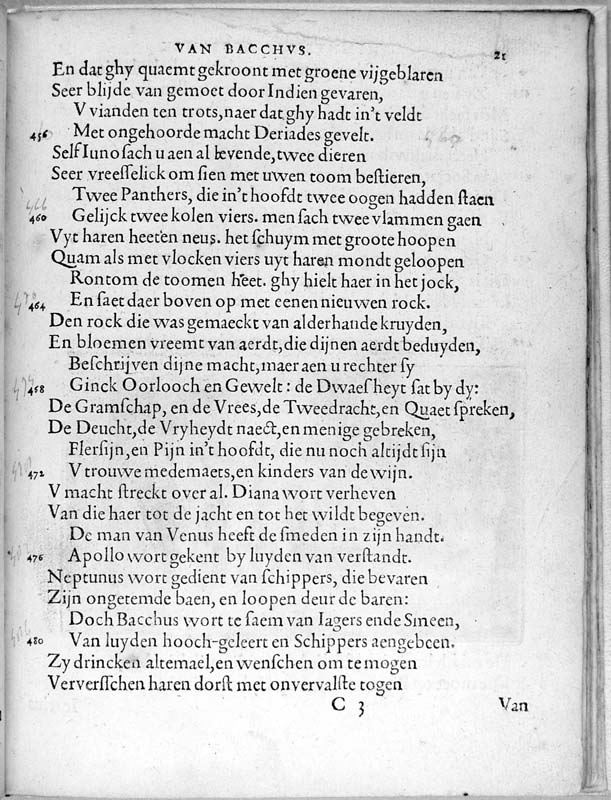 VAN BACCHVS. 21
En dat ghy quaemt gekroont met groene vijgeblaren
Seer blijde van gemoet door Indien gevaren,
V vianden ten trots, naer dat ghy hadt in't veldt
456 Met ongehoorde macht Deriades gevelt.
Self Iuno sach u aen al levende, twee dieren
Seer vreesselick om sien met uwen toom bestieren,
Twee Panthers, die in't hoofdt twee oogen hadden staen
460 Gelijck twee kolen viers. men sach twee vlammen gaen
Vyt haren heeten neus. het schuym met groote hoopen
Quam als met vlocken viers uyt haren mondt geloopen
Rontom de toomen heet. ghy hielt haer in het jock,
464 En saet daer boven op met eenen nieuwen rock.
Den rock die was gemaeckt van alderhande kruyden,
En bloemen vreemt van aerdt, die dijnen aerdt beduyden,
Beschrijven dijne macht, maer aen u rechter sy
468 Ginck Oorlooch en Gewelt: de Dwaesheyt sat by dy:
De Gramschap, en de Vrees, de Tweedracht, en Quaet spreken,
De Deucht, de Vryheydt naect, en menige gebreken,
Flersijn, en Pijn in't hoofdt, die nu noch altijdt sijn
472 V trouwe medemaets, en kinders van de wijn.
V macht streckt over al. Diana wort verheven
Van die haer tot de jacht en tot het wildt begeven.
De man van Venus heeft de smeden in zijn handt.
476 Apollo wort gekent by luyden van verstandt.
Neptunus wort gedient van schippers, die bevaren
Zijn ongetemde baen, en loopen deur de baren:
Doch Bacchus wort te saem van Iagers ende Smeen,
480 Van luyden hooch-geleert en Schippers aengebeen.
Zy drincken altemael, en wenschen om te mogen
Ververschen haren dorst met onvervalste togen
C 3 Van